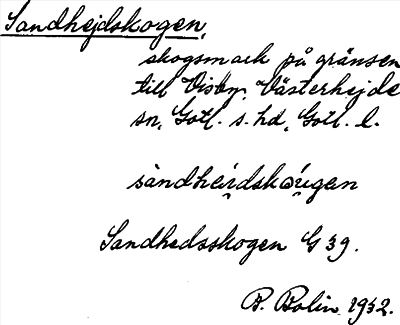 Sandhejdskogen,
skogsmark på gränsen
till Visby. Västerhejde
sn, Gotl. s. hd, Gotl. l.
sàndhei̯dskǝu̯gen
Sandhedsskogen G 39.
B. Bolin 1932.